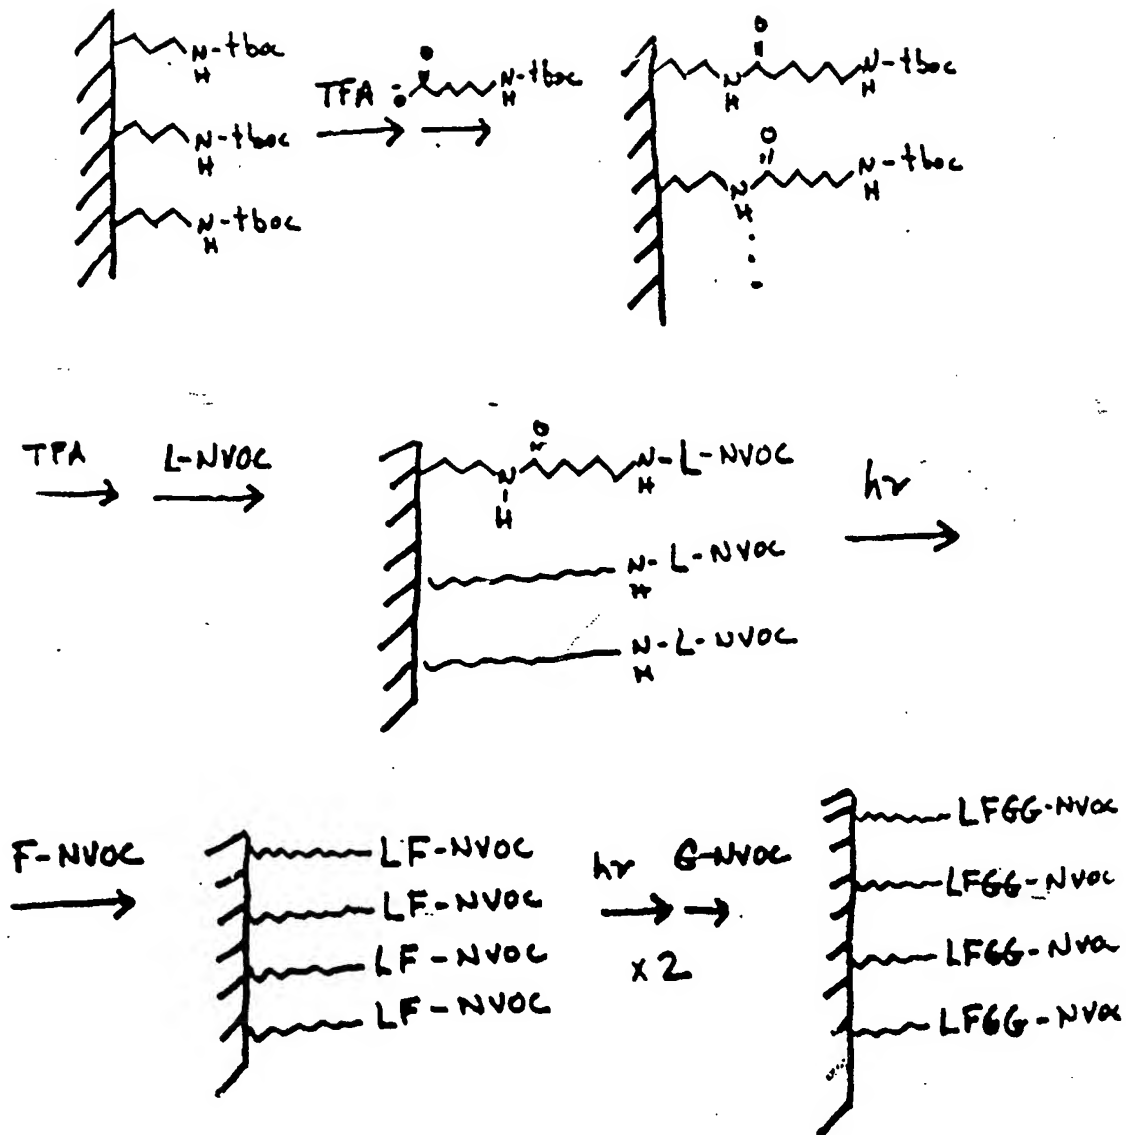 N-tboc
H
N-tboc
H
N-tboc
H
TFA
O
O
N-tboc
H
O
N
H
N-tboc
H
O
N
H
N-tboc
H
TFA
L-NVOC
O
N
H
N-L-NVOC
H
N-L-NVOC
H
N-L-NVOC
H
hν
F-NVOC
LF-NVOC
LF-NVOC
LF-NVOC
LF-NVOC
hν G-NVOC
x2
LFGG-NVOC
LFGG-NVOC
LFGG-NVOC
LFGG-NVOC